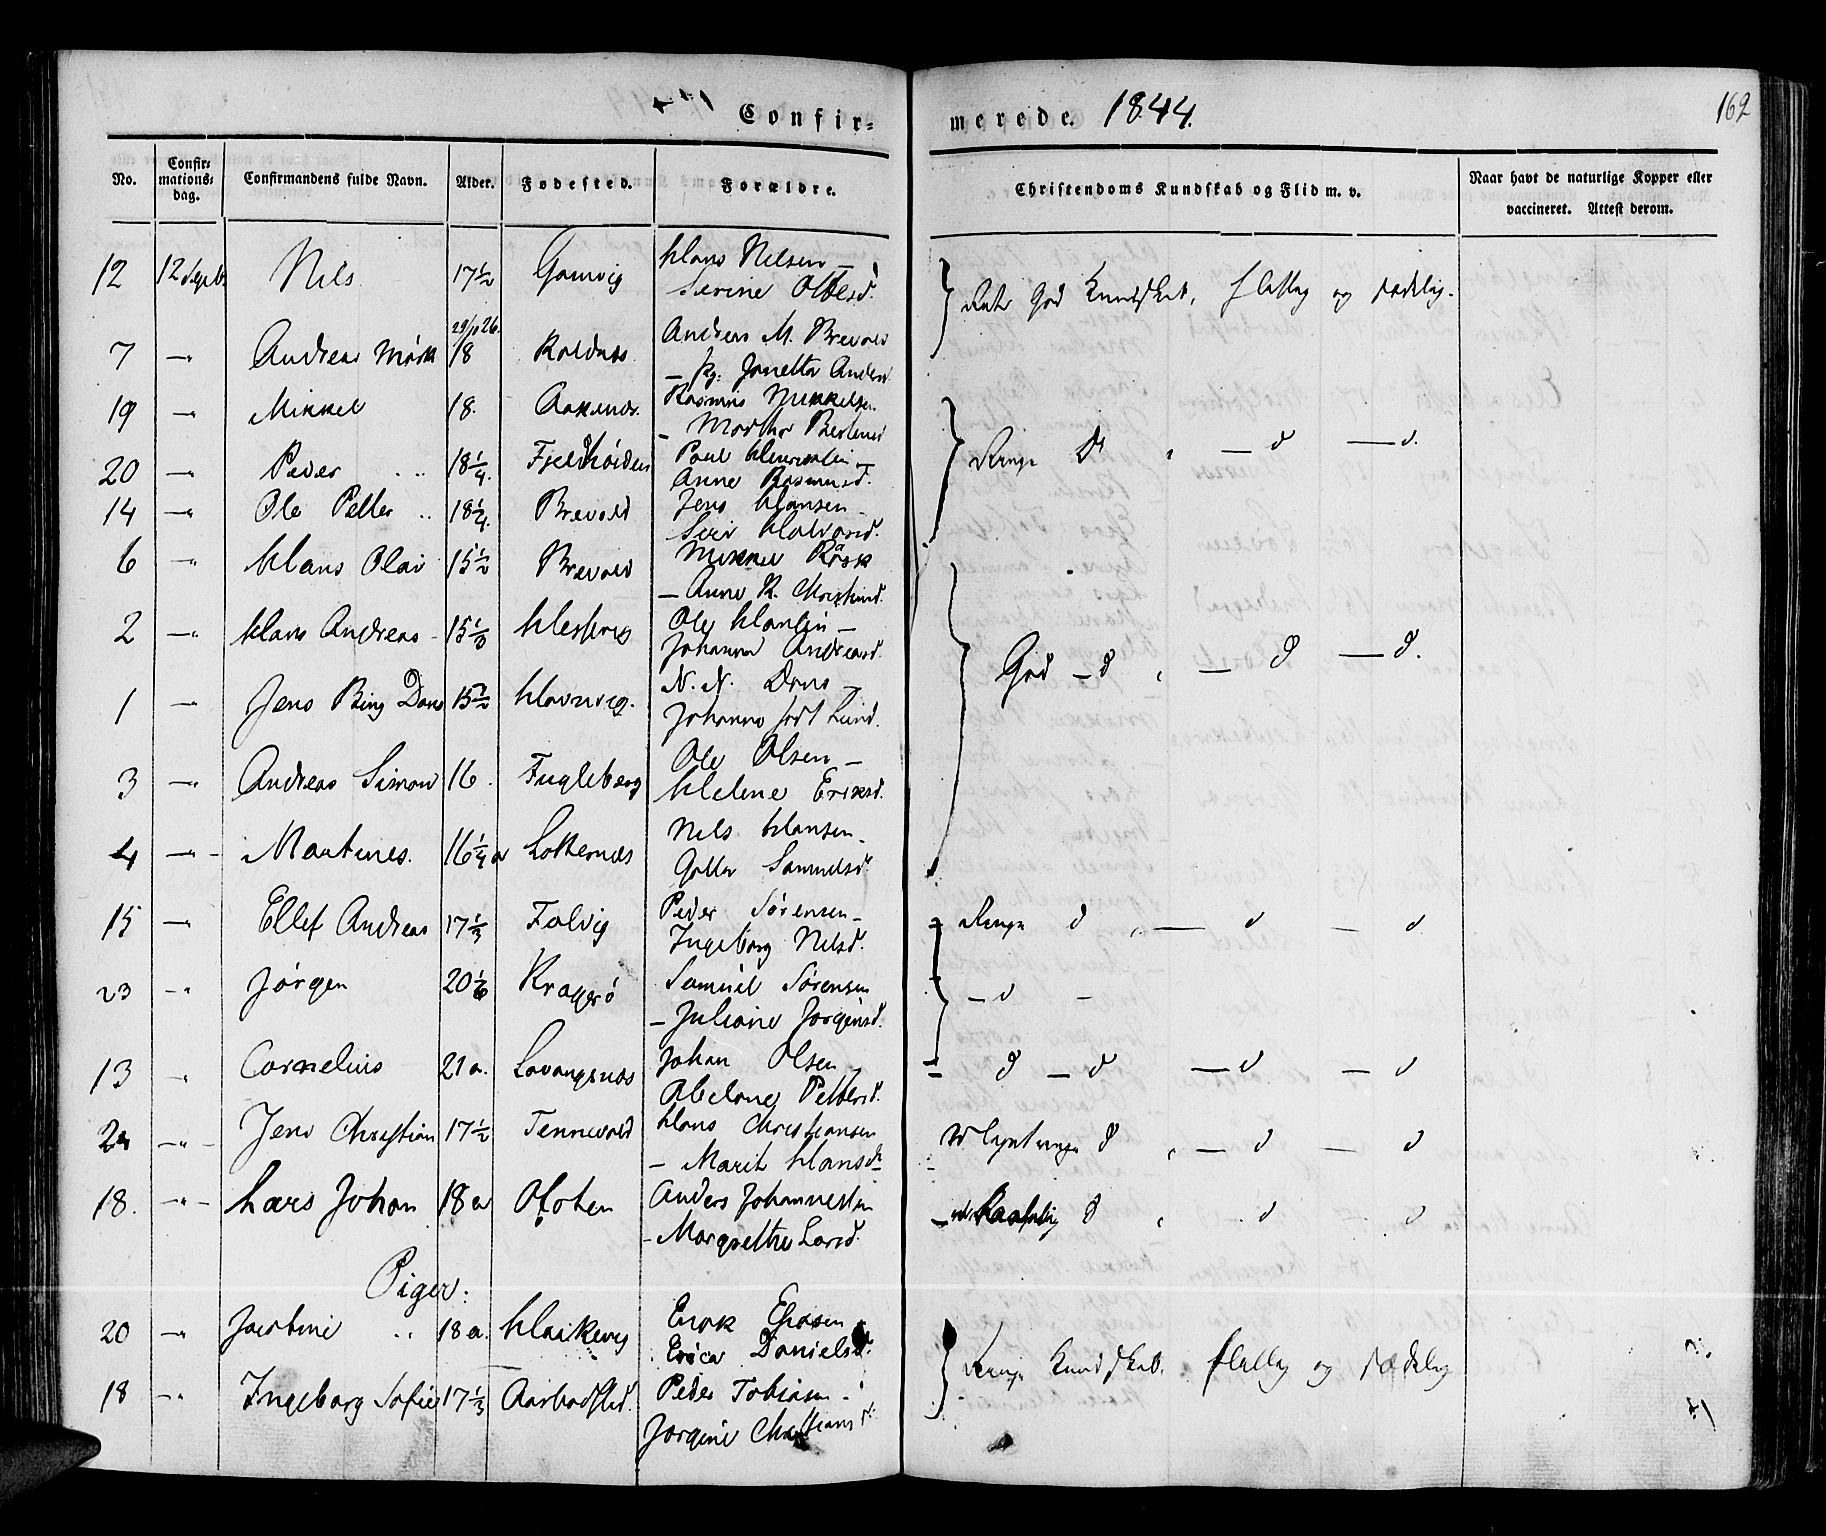 Confir-
merede. 1844.
162
No.
Confir-
mations-
dag.
Confirmandens fulde Navn.
Alder.
Fodested.
Forældre.
Christendoms Kundskab og Flid m. v.
Naar havt de naturlige Kopper eller
vaccineret. Attest derom.
12 12 Septb. Nils 17½ Gamvig Hans Nilsen –
God Kundskab, flittig og sædelig.
7 –"– Andreas Mørk 29/10 26. 18 Andreas M. Brevold
– Jonetta Anders
19 –"– Mikkel 18. Rasmus Mikkelsen
– Martha
20 –"– Peder 18¼. Fjeldhøiden Poul
Anne Rasmusd.
Ringe d – d – d.
14 –"– Ole Petter 18¼. Brevold Jens Hansen –
Siri Halvorsd.
6 –"– Hans Olai 15½ Brevold Mikkel
– Anne K.
2 –"– Hans Andreas 15⅓ Ole Hansen –
Johanna Andreasd.
God – d – d – d.
1 –"– Jens Bing Dons 15½ Havnvig. N. N. Dons –
Johanna født Lund.
3 –"– Andreas Simon 16. Fugleberg Ole Olsen –
Helene Eriksd.
4 –"– Martines. 16¼ a Løkkenæs Nils Hansen –
Samuelsd.
15 –"– Ellef Andreas 17⅓ Falvig Peder Sørensen –
Ingeborg Nilsd.
Ringe d – d – d
23 –"– Jørgen 20⅙ Kragerø Samuel Sørensen
– Juliane Jørgensd.
– d –
13 " Cornelius 21 a. Lavangsnæs Johan Olsen –
Abelone Pettersd.
– d – d – d – d
–"– Jens Christian 17½ Tennevold Hans Christiansen
– Marit Hansd.
ringe d – d – d
18. –"– Lars Johan 18 a Ofoten Anders Johannessen
– Margrethe Larsd.
d d d
Piger.
20 –"– Justine 18 a. Erik
Erica Danielsd.
Ringe Kundskab. flittig og sædelig
18 –"– Ingeborg Sofie 17⅓ Aarbodsted. Peder Tobiasen –
Jørgine Christiansd.